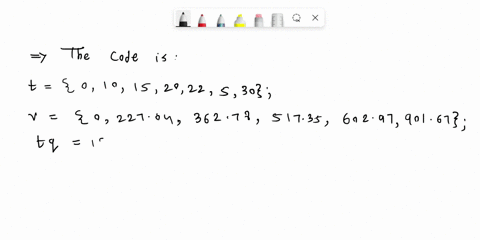 ⇒ The Code is:
t = { 0, 10, 15, 20, 22, 5, 30};
v = { 0, 227.04, 362.78, 517.35, 602.97, 901.67};
tq = 1